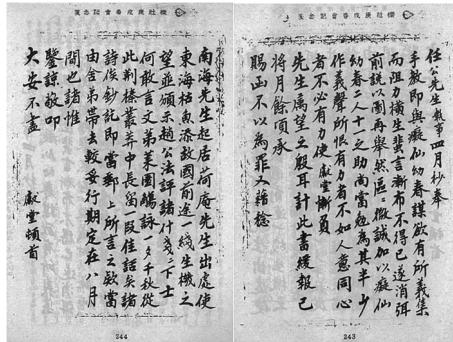 任公先生敘事四月抄奉
手教即與癡仙幼春謀欲有所義集
而阻力橫生蜚言漸布不得已遂消弭
前説以圖再舉然區區微誠加以癡仙
幼春二人十一之助尚當勉為其半少
作義聲所恨有力者不如人意同心
者不必有力使獻堂慚負
先生厲望之殷耳計此書緩報已
將月餘項承
賜函不以為罪又稽稔
243
南海先生起居荷庵先生出處使
東海枯魚添故國前途一綫生機之
望並頒示趙公法評諸什戔戔下士
何敢言文弟萊園觴詠一夕千秋從
此荊榛叢莽中長留一段佳話矣諸
詩俟鈔記即當郵上所言之款當
由舍弟帶去較妥行期定在八月
間也諸惟
鑒諒敬叩
大安不盡
獻堂頓首
244